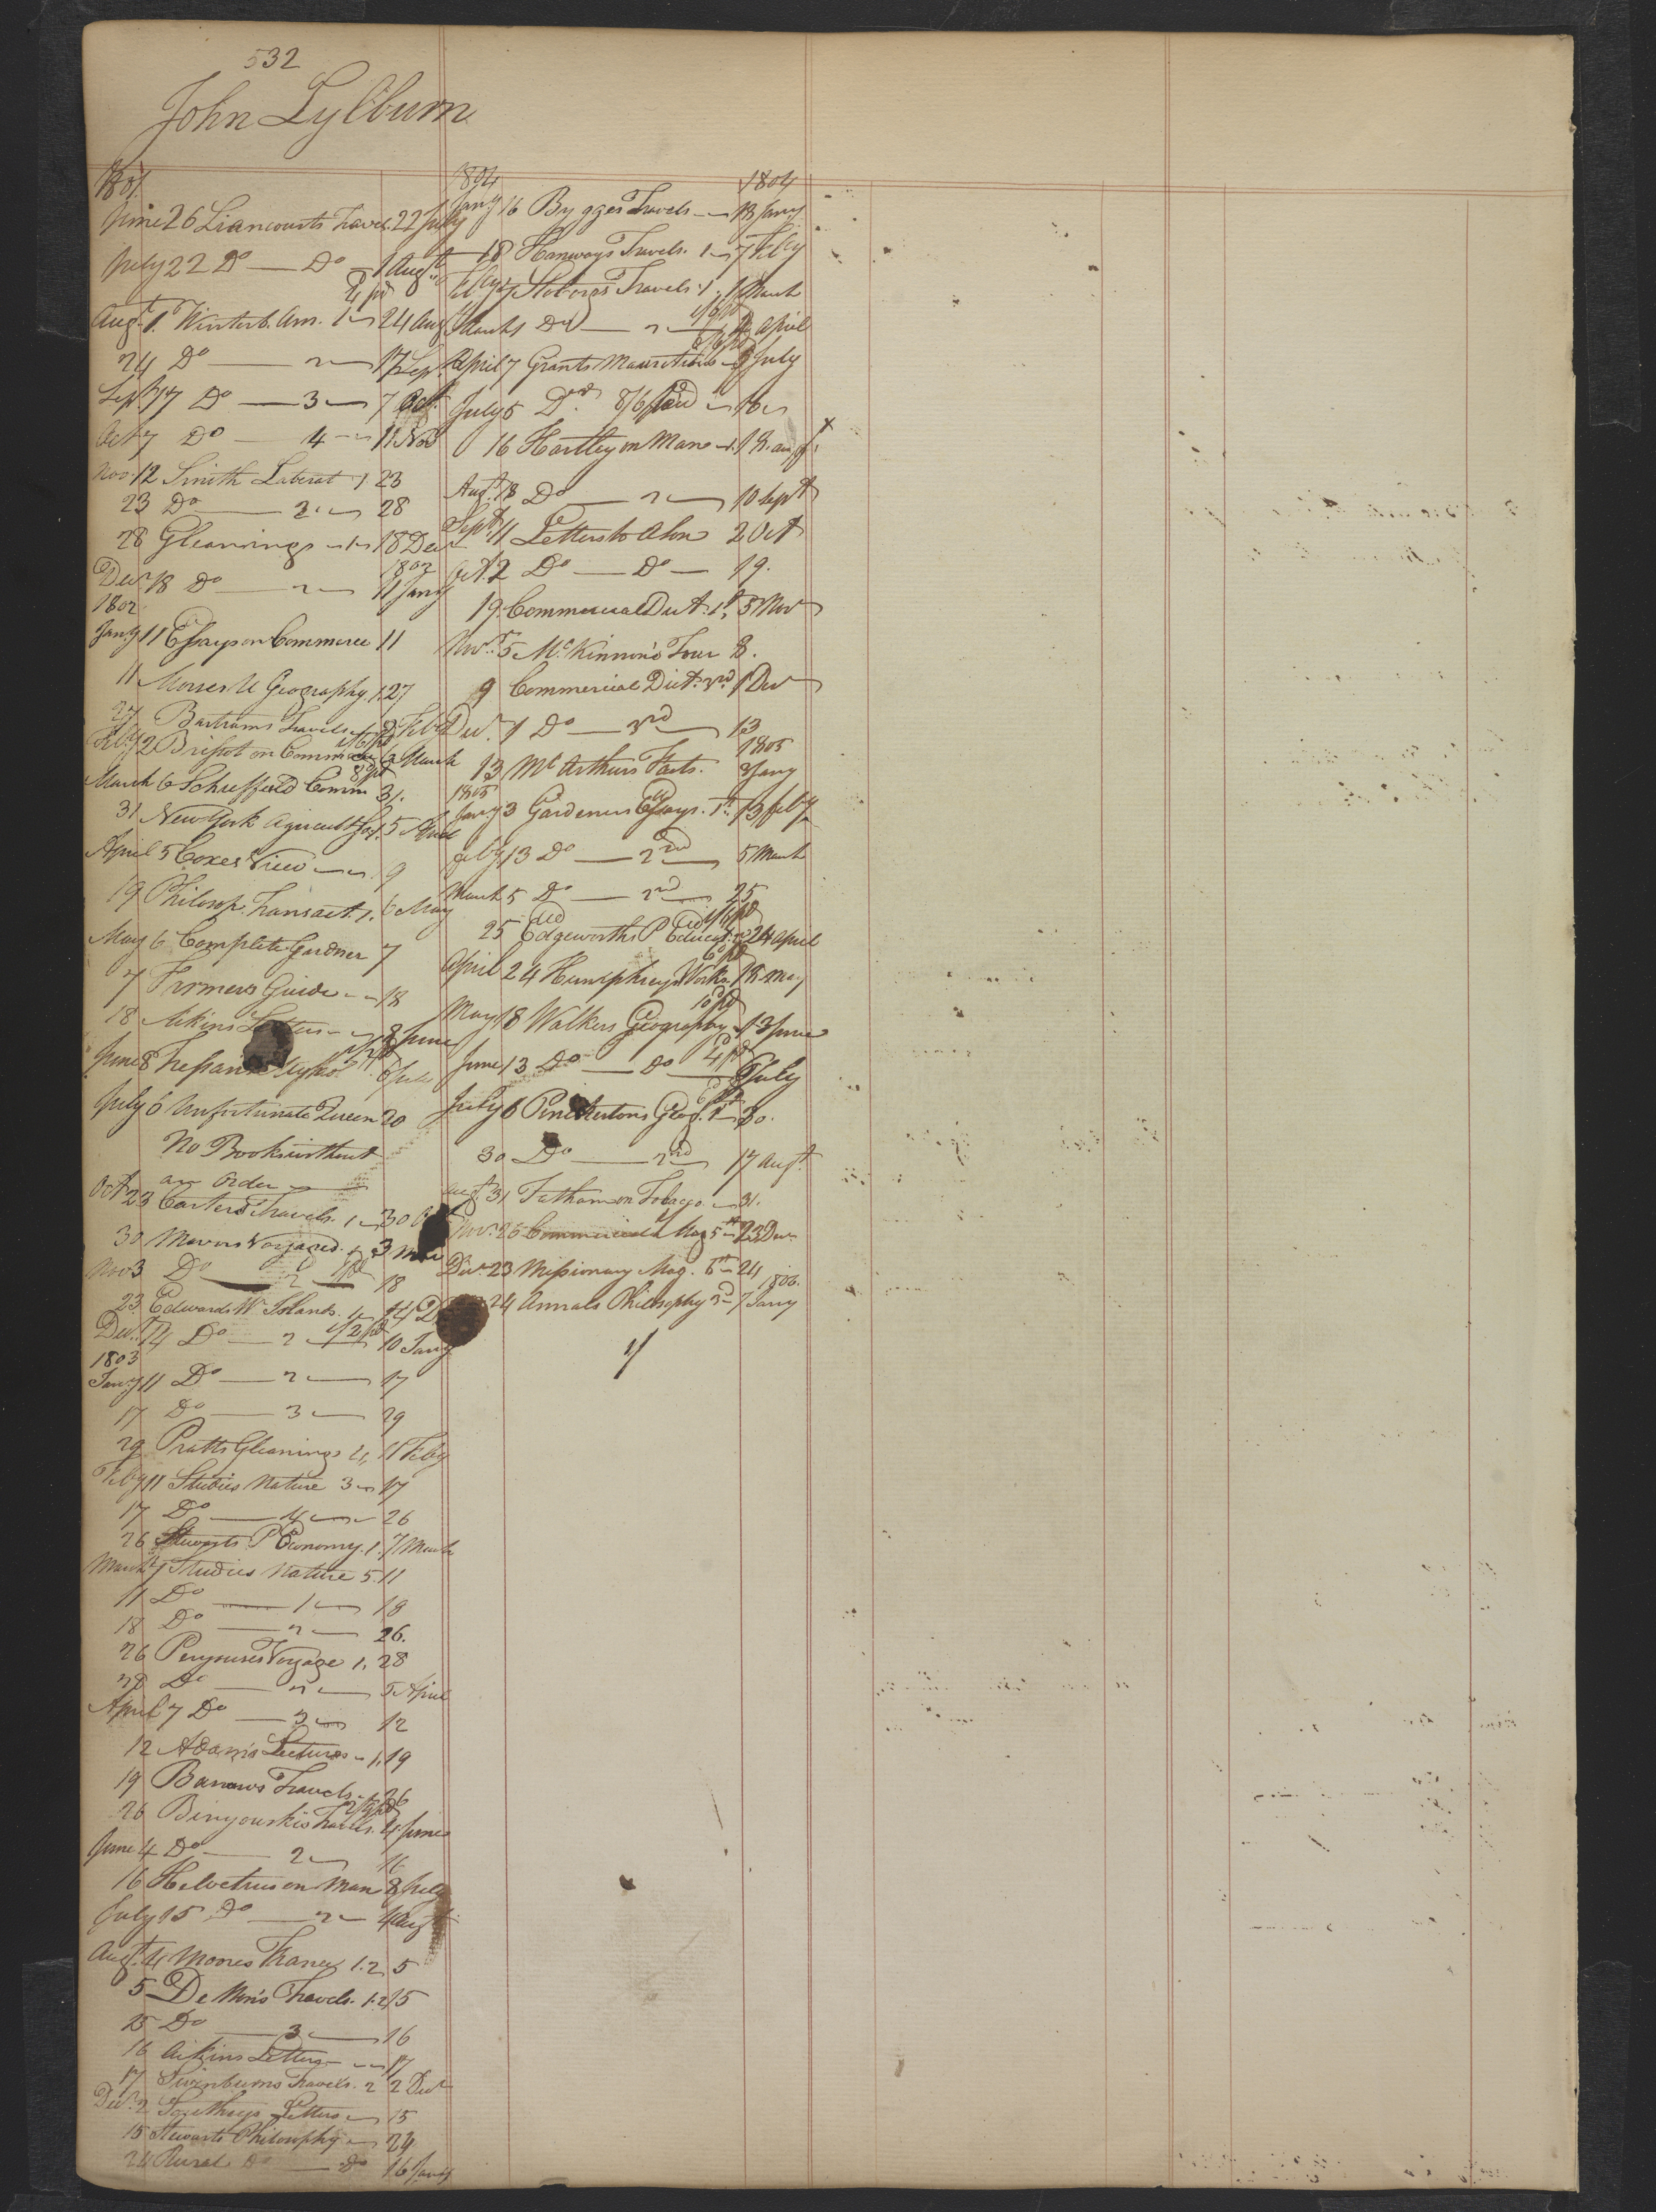 532
John Lylburn
1801
June 26 Liancourts Travel. 22 July
July 22 Do — Do — 1 Augt
4/ pd
Augt 1. Winterb. Am. 1 24 Aug
24 Do — 2 — 17 Sept
Sept 17 Do — 3 — 7 Oct
Oct 7 Do — 4 — 11 Nov
Nov. 12 Smith Laberat 1 23
23 Do — 2 — 28
28 Gleanings — 1 — 18 Decr
1802
Decr 18 Do — 2 — 11 Jany
1802
Jany 11 Essays on Commerce 11
11 Morses U Geography. 1. 27
27 Bartrams Travels 2 Feby
Feby 2 Brissot on Commerce 6 March
March 6 Scheffield Comm 31.
31 New York Agricult Soc. 5 April
April 5 Coxes View — 9
19 Philosop. Transact. 1. 6 May
May 6 Complete Gardner 7
7 Farmers Guide — 18
18 Aikins Letters — 8 June
June 8 6 July
July 6 Unfortunate Queen 20
No Books without
an Order —
Oct 23 Carters Travels. 1 — 30 Oct
30 Mavors Voyages. 1 3 Nov
Nov 3 Do 2 18
23 Edwards W Islands. 1 — 14 D
Decr 14 Do — 2 — 10 Jany
1803
Jany 11 Do — 2 — 17
17 Do — 3 — 29
29 Pratts Gleanings 2, 11 Feby
Feby 11 Studies Nature 3 — 17
17 Do — 4 — 26
26 Stewarts P Economy. 1. 7 March
March 7 Studies Nature 5. 11
11 Do — 1 — 18
18 Do — 2 — 26.
26 Perouses Voyage 1. 28
28 Do — 2 — 5 April
April 7 Do — 3 — 12
12 Adams's Lectures — 1. 19
19 Barrows Travels — 26
26 Binyouskis Travls. 4 June
June 4 Do — 2 — 16
16 Helvetius on Man 8 July
July 15 Do — 2 — 4 Augt
Augt 4 Moores France 1. 2. 5
5 De Non's Travels. 1. 2 15
15 Do — 3 — 16
16 Aikins Letters — 17
17 Swinburns Travels. 2 2 Decr
Decr 2 Letters — 15
15 Stewarts Philosophy — 24
24 Rural Do — Do 16 Jany
1804 1804
Jany 16 Bygges Travels — 18 Jany
18 Hanways Travels. 1 — 7 Feby
Feby 7 Travels 1. 1 March
March 1 Do — 2 — April
April 7 Grants Mauritius — 5 July
July 5 Do 8/6 paid — 16
16 Hartley on Man — 1. 18. augt x
Augt 18 Do — 2 — 10 Sept
Sept 11 Letters to a Son 2 Oct
Oct. 2 Do — Do — 19.
19. Commercial Dict. 1st 5 Nov
Novr 5 McKinnon's Tour 8.
9 Commercial Dict. 2nd 1 Decr
Decr. 1 Do — 3rd — 13
1805
13 McArthurs Facts. 3 Jany
1805
Jany 3 Gardeners Essays. 1st. 13 feby
feby 13 Do — 2nd — 5 March
March 5 Do — 2nd — 25
25 Edgeworths P Educat. 24 April
April 24 Humphreys Works 18 May
May 18 Walkers Geography — 13 June
June 13 Do — Do 4/ pd 6 July
July 6 Pinckertons Geog. 1st 30.
30 Do — 2nd — 17 Augt
augt 31 Tatham on Tobacco — 31.
Novr. 26 Commercial Mag 5th 23 Decr
Decr 23 Missionary Mag. 6th 24
1806.
24 Annals Philosophy 3d — 7 Jany